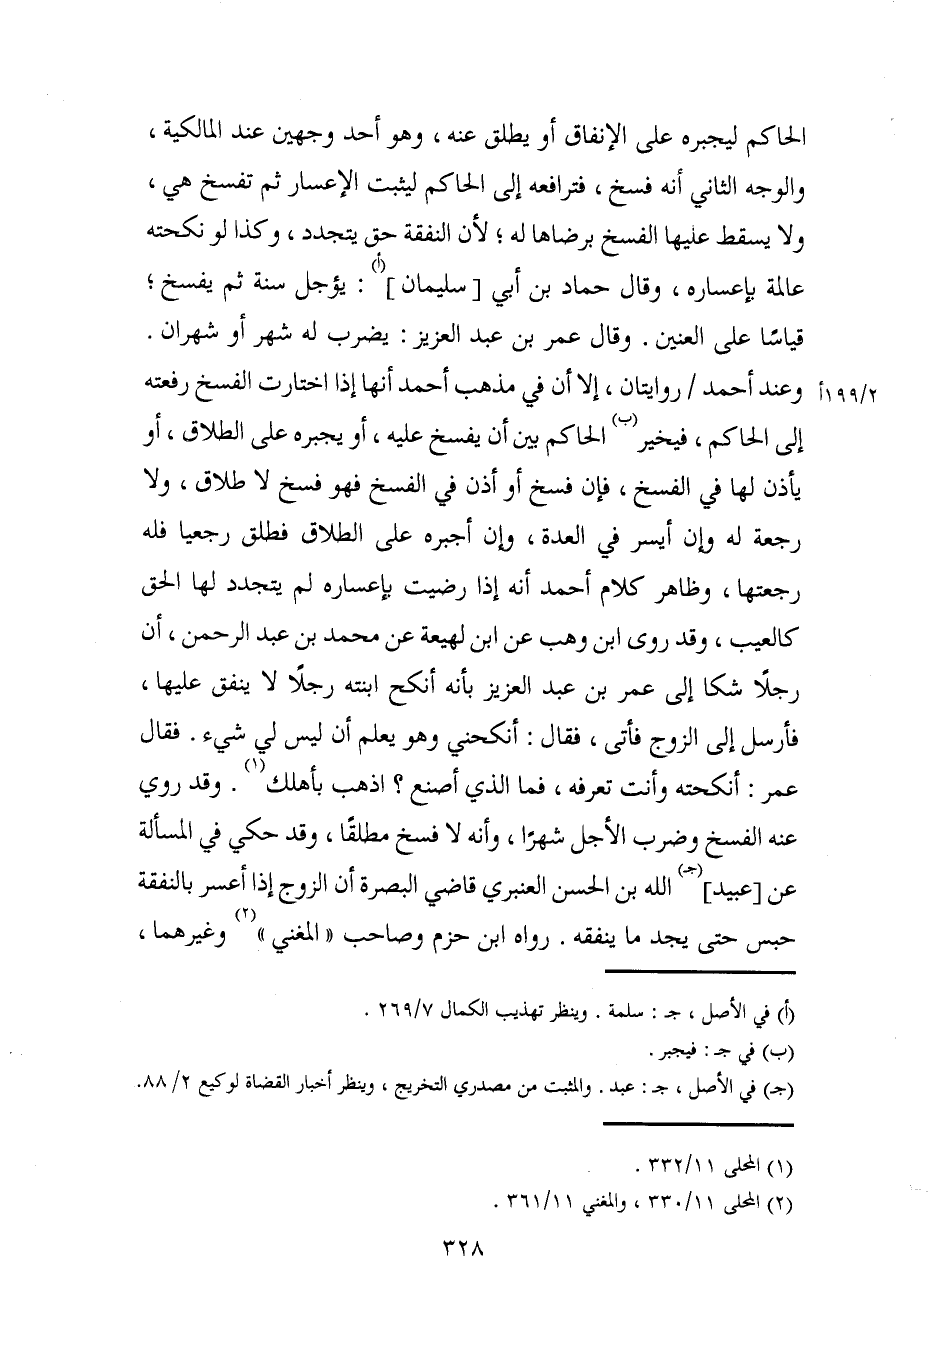 الحاكم ليجبره على الإنفاق أو يطلق عنه ، وهو أحد وجهين عند المالكية ،
والوجه الثاني أنه فسخ ، فترافعه إلى الحاكم ليثبت الإعسار ثم تفسخ هي ،
ولا يسقط عليها الفسخ برضاها له ؛ لأن النفقة حق يتجدد ، وكذا لو نكحته
عالمة بإعساره ، وقال حماد بن أبي [ سليمان ](أ) : يؤجل سنة ثم يفسخ ؛
قياسًا على العنين . وقال عمر بن عبد العزيز : يضرب له شهر أو شهران .
١٩٩/٢أ وعند أحمد / روايتان ، إلا أن في مذهب أحمد أنها إذا اختارت الفسخ رفعته
إلى الحاكم ، فيخير(ب) الحاكم بين أن يفسخ عليه ، أو يجبره على الطلاق ، أو
يأذن لها في الفسخ ، فإن فسخ أو أذن في الفسخ فهو فسخ لا طلاق ، ولا
رجعة له وإن أيسر في العدة ، وإن أجبره على الطلاق فطلق رجعيا فله
رجعتها ، وظاهر كلام أحمد أنه إذا رضيت بإعساره لم يتجدد لها الحق
كالعيب ، وقد روى ابن وهب عن ابن لهيعة عن محمد بن عبد الرحمن ، أن
رجلًا شكا إلى عمر بن عبد العزيز بأنه أنكح ابنته رجلًا لا ينفق عليها ،
فأرسل إلى الزوج فأتى ، فقال : أنكحني وهو يعلم أن ليس لي شيء . فقال
عمر : أنكحته وأنت تعرفه ، فما الذي أصنع ؟ اذهب بأهلك(١) . وقد روي
عنه الفسخ وضرب الأجل شهرًا ، وأنه لا فسخ مطلقًا ، وقد حكي في المسألة
عن [عبيد](جـ) الله بن الحسن العنبري قاضي البصرة أن الزوج إذا أعسر بالنفقة
حبس حتى يجد ما ينفقه . رواه ابن حزم وصاحب « المغني »(٢) وغيرهما ،
(أ) في الأصل ، جـ : سلمة . وينظر تهذيب الكمال ٢٦٩/٧ .
(ب) في جـ : فيجبر .
(جـ) في الأصل ، جـ : عبد . والمثبت من مصدري التخريج ، وينظر أخبار القضاة لوكيع ٢/ ٨٨.
(١) المحلى ٣٣٢/١١ .
(٢) المحلى ٣٣٠/١١ ، والمغني ٣٦١/١١ .
٣٢٨